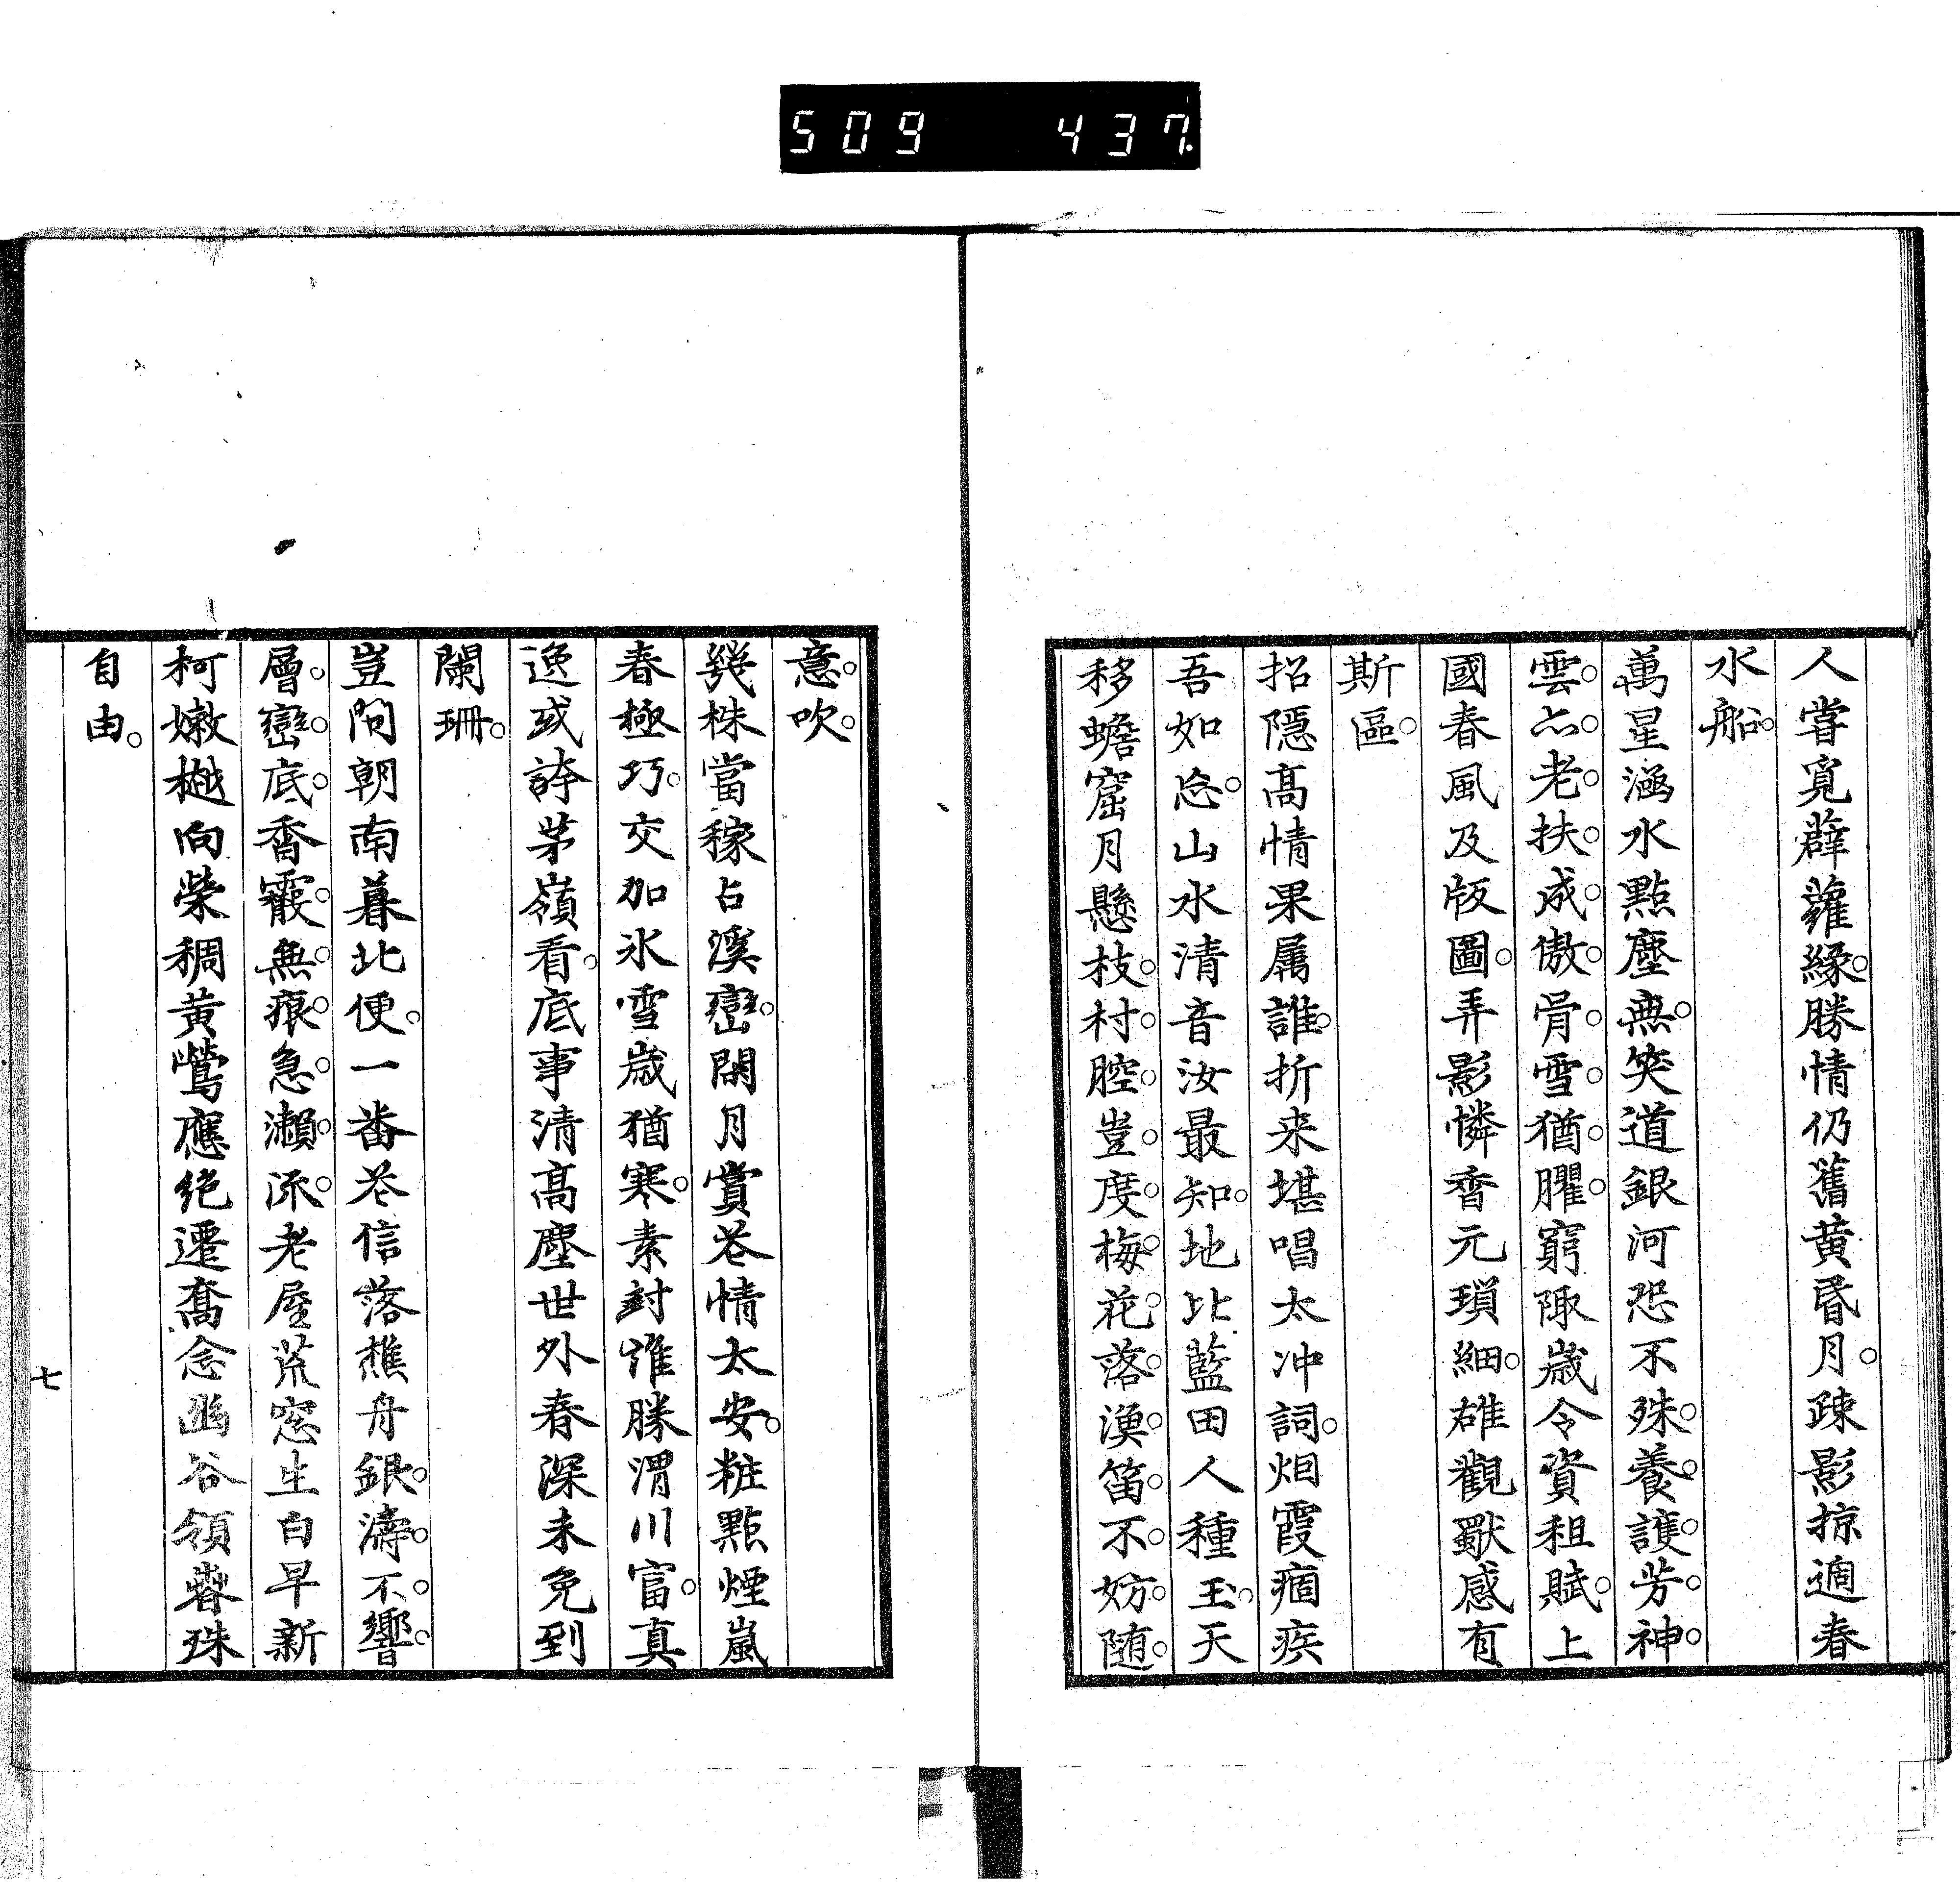 509 437
人嘗寛薜蘿緣勝情仍舊黄昏月疎影掠過春
水船
萬星涵水點塵無笑道銀河恐不殊養護芳神
雲亦老扶成傲骨雪猶臞窮陬歳令資租賦上
國春風及版圖弄影憐香元瑣細雄觀獣感有
斯區
招隠高情果属誰折来堪唱太冲詞烟霞痼疾
吾如忘山水清音汝最知地比藍田人種玉天
移蟾窟月懸枝村腔豈度梅花落漁笛不妨随
意吹
幾株當稼占溪巒閑月賞花情太安粧點煙嵐
春極巧交加氷雪歳猶寒素封誰勝渭川富真
逸或誇茅嶺看底事清高塵世外春深未免到
闌珊
豈問朝南暮北便一番花信落樵舟銀濤不響
層巒底香霰無痕急瀬流老屋荒窓生白早新
柯嫩樾向榮稠黄鶯應絶遷喬念幽谷領春殊
自由
七